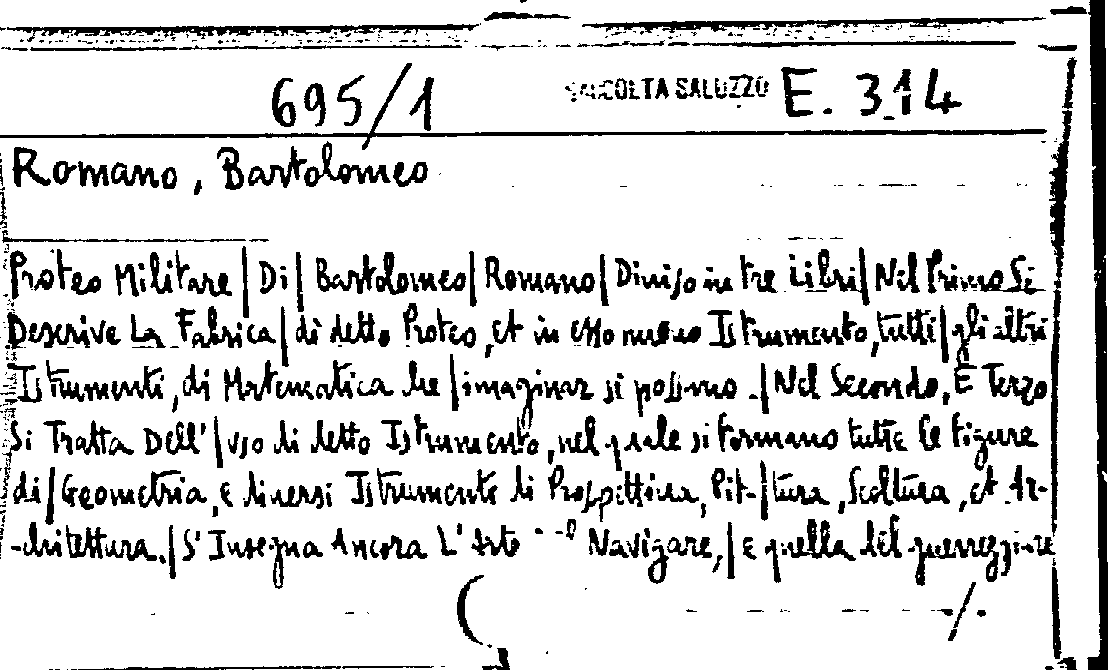 695/1 RACCOLTA SALUZZO E. 314
Romano, Bartolomeo
Proteo Militare | Di | Bartolomeo | Romano | Diviso in tre Libri | Nel Primo Si
Descrive La Fabrica | di detto Proteo, et in esso nuovo Istrumento, tutti | gli altri
Istrumenti, di Matematica che | imaginar si possono. | Nel Secondo, E Terzo
Si Tratta Dell' | vso di detto Istrumento, nel quale si formano tutte le figure
di | Geometria, e diversi Istrumenti di Prospettiva, Pit- | tura, Scoltura, et Ar-
-chitettura. | S' Insegna Ancora L' Arte Navigare, | e quella del guerreggiare
./.